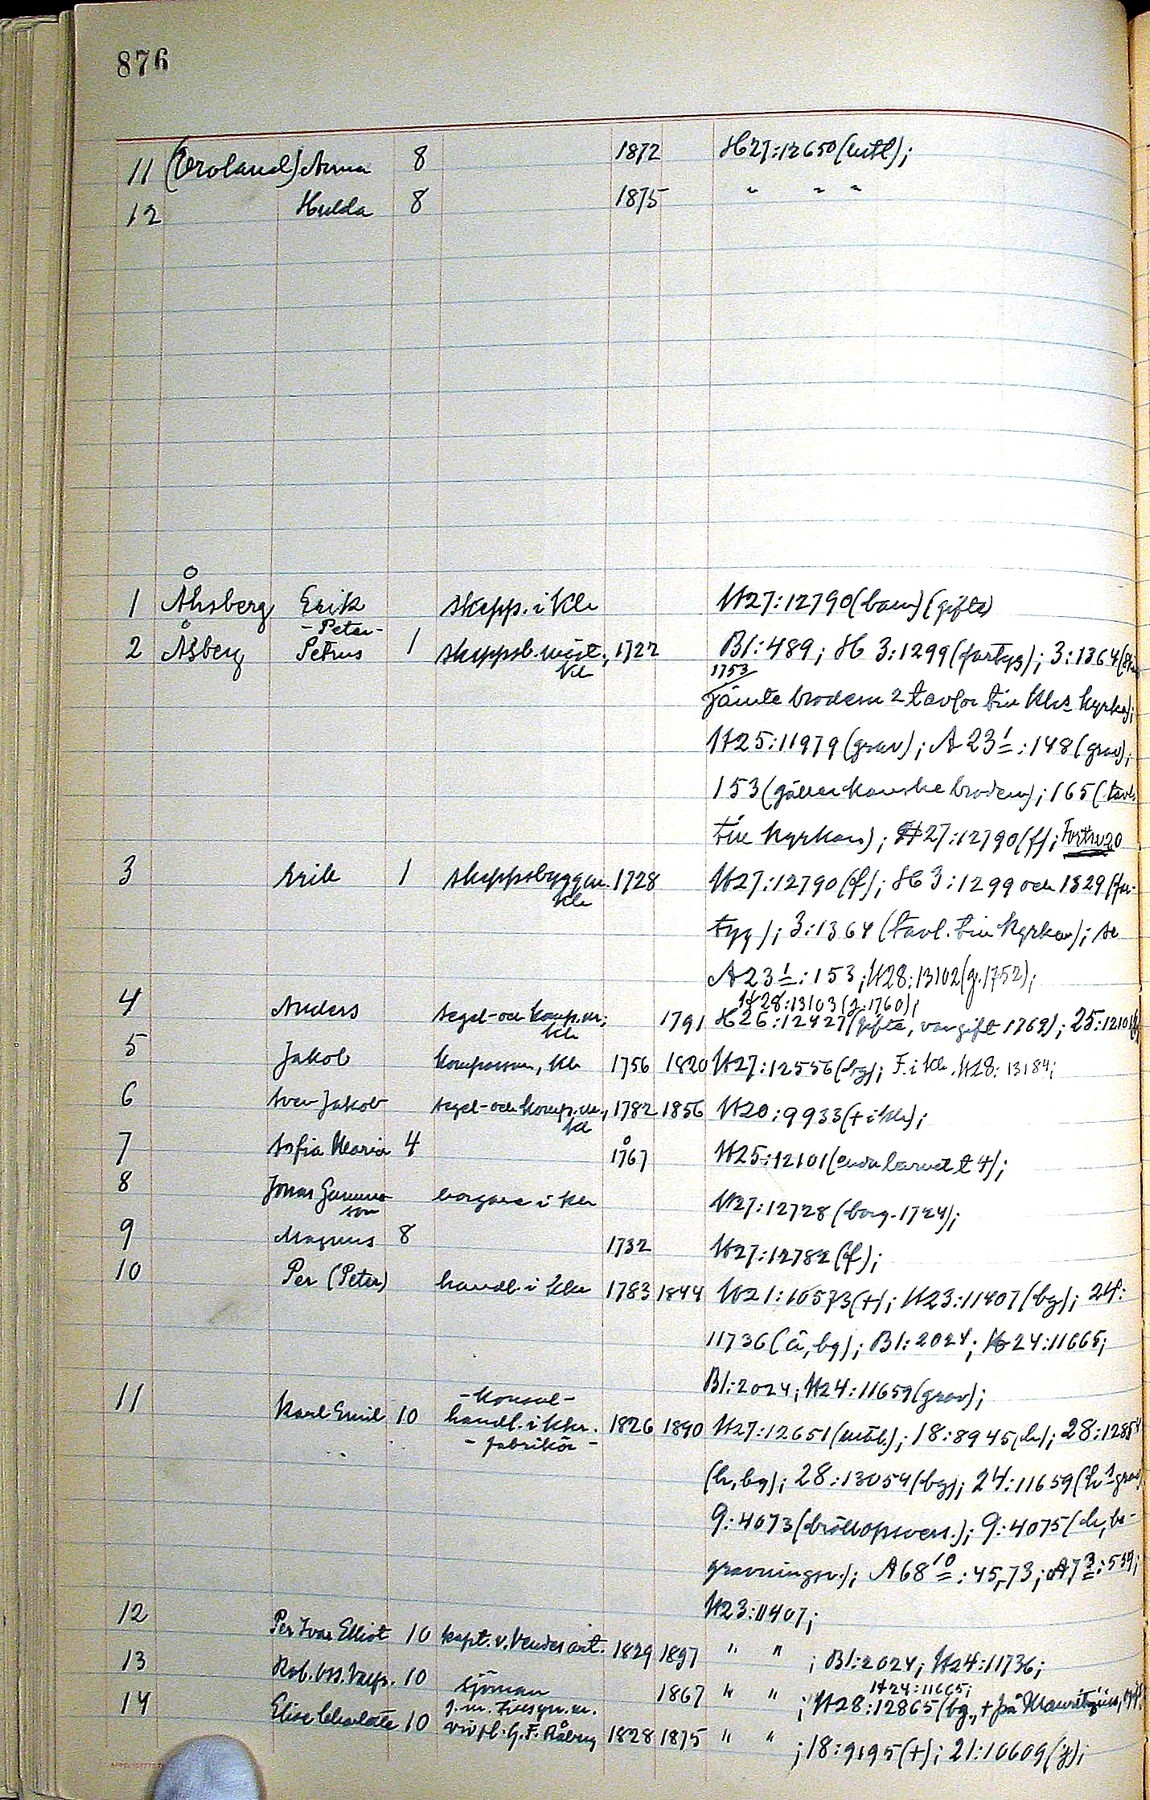 876
11 (Croland) Anna 8 1872 H27:12650(utl);
12 Hulda 8 1875 " " "
Å
1 Åhsberg Erik skepp. i Khn H27:12790(barn)(gifte)
-Peter-
2 Åsberg Petrus 1 skeppsb.mäst., 1722 B1:489; H 3:1299(fartyg); 3:1364
Kh
1753
jämte brodern 2 tavlor till Khs kyrka);
H25:11979(grav); A 23 1:148(grav);
153(gäller kanske brodern); 165(tavl.
till kyrkan); H27:12790(f);
3 Erik 1 skeppsbyggm. 1728 H27:12790(f); H 3:1299 och 1329(far-
Kh
tyg); 3:1364(tavl. till kyrkan); se
A 23 1:153; H28:13102(g.1752);
H28:13103(g.1760);
4 Anders segel- och komp.m; 1791 H26:12427(gifte, var gift 1762); 25:12101
Kh
5 Jakob kompassm, Kh 1756 1820 H27:12556(bg); F. i Kh. H28:13184;
6 Sven Jakob segel- och komp.m., 1782 1856 H20:9933(+ i Kh);
Kh
7 Sofia Maria 4 1767 H25:12101(enda barnet t 4);
8 Jonas Gummes- borgare i Kh H27:12728(borg. 1724);
son
9 Magnus 8 1732 H27:12782(f);
10 Per (Peter) handl. i Khn 1783 1844 H21:10573(+); H23:11407(bg); 24:
11736(å, bg); B1:2024; H24:11665;
B1:2024; H24:11659(grav);
-konsul-
11 Karl Emil 10 handl. i Khn. 1826 1890 H27:12651(utl.); 18:8945(h); 28:12854
- fabrikör -
(h, bg); 28:13054(bg); 24:11659(h 1 grav)
9:4073(bröllopsvers.); 9:4075(h, be-
gravningsv.); A68 10:45,73; A7 3:539;
H23:11407;
12 Per Ivar Elliot 10 kapt. v. Vendes art. 1829 1897 " " ; B1:2024; H24:11736;
H24:11665;
13 Rob. Osc. Valfr. 10 sjöman 1867 " " ; H28:12865(bg., + på Mauritzius,
14 Elise Charlotte 10 1828 1875 " " ; 18:9195(+); 21:10609(g);